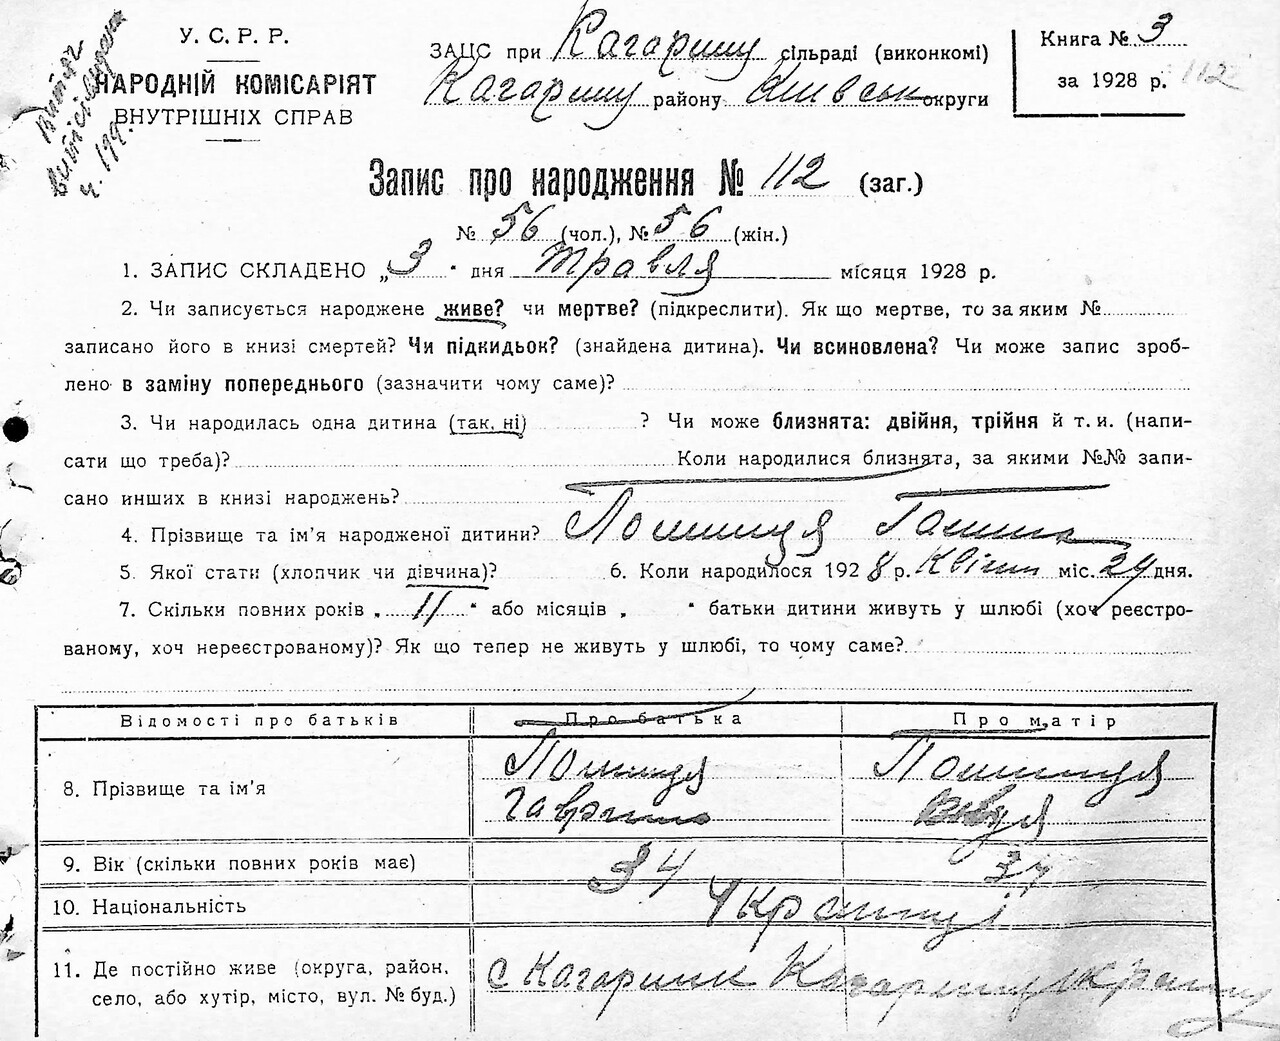 Витяг
виді
ч. 199.
У. С. Р. Р.
НАРОДНІЙ КОМІСАРІЯТ
ВНУТРІШНІХ СПРАВ
ЗАЦС при Кагарлику сільраді (виконкомі)
Кагарлику району Київськ округи
Книга № 3
за 1928 р. 112
Запис про народження № 112 (заг.)
№ 56 (чол.), № 56 (жін.)
1. ЗАПИС СКЛАДЕНО „3" дня травля місяця 1928 р.
2. Чи записується народжене живе? чи мертве? (підкреслити). Як що мертве, то за яким №
записано його в книзі смертей? Чи підкидьок? (знайдена дитина). Чи всиновлена? Чи може запис зроб-
лено в заміну попереднього (зазначити чому саме)?
3. Чи народилась одна дитина (так, ні) ? Чи може близнята: двійня, трійня й т. и. (напи-
сати що треба)? Коли народилися близнята, за якими №№ запи-
сано инших в книзі народжень?
4. Прізвище та ім'я народженої дитини?
5. Якої стати (хлопчик чи дівчина)? 6. Коли народилося 1928 р. Квітня міс. 29 дня.
7. Скільки повних років „11" або місяців „ " батьки дитини живуть у шлюбі (хоч реєстро-
ваному, хоч нереєстрованому)? Як що тепер не живуть у шлюбі, то чому саме?
Відомості про батьків Про батька Про матір
8. Прізвище та ім'я
Гаврило
9. Вік (скільки повних років має) 34 37
10. Національність Українці
11. Де постійно живе (округа, район,
село, або хутір, місто, вул. № буд.)
с Кагарлик Кагарлицьк району